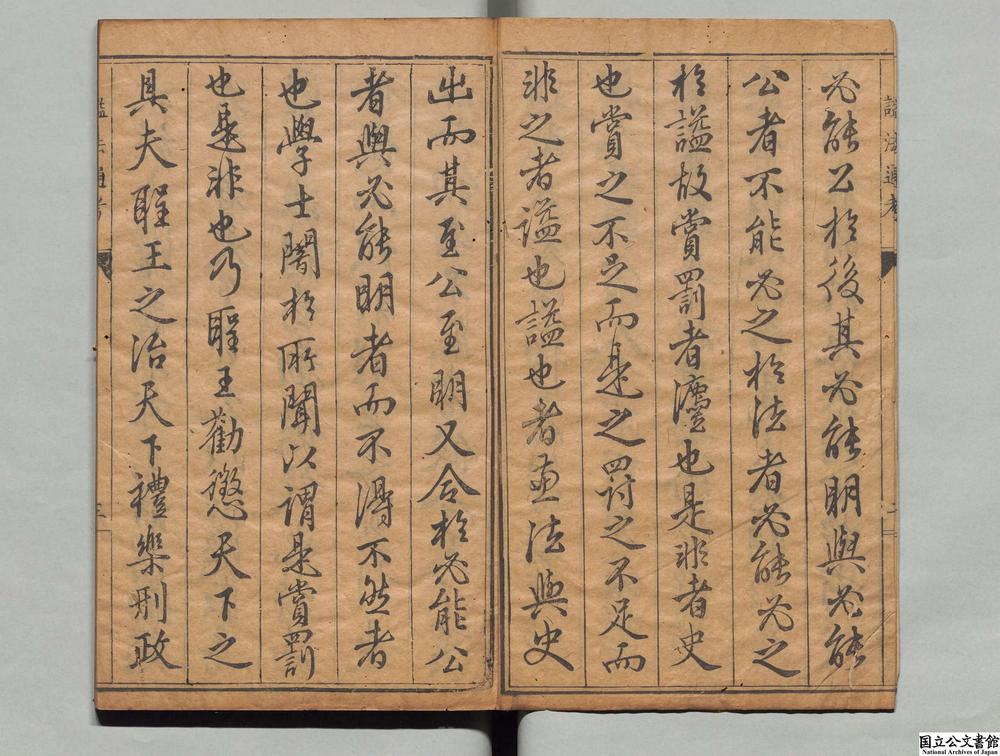 謚法通考 二
必能公於後其必能明與必能
公者不能必之於法者必能必之
於謚故賞罰者灋也是非者史
也賞之不足而是之罰之不足而
非之者謚也謚也者兼法與史
出而其至公至明又合於必能公
者與必能明者而不得不然者
也學士闇於所聞以謂是賞罰
也是非也乃聖王勸懲天下之
具夫聖王之治天下禮樂刑政
謚法通考 三
国立公文書館
National Archives of Japan